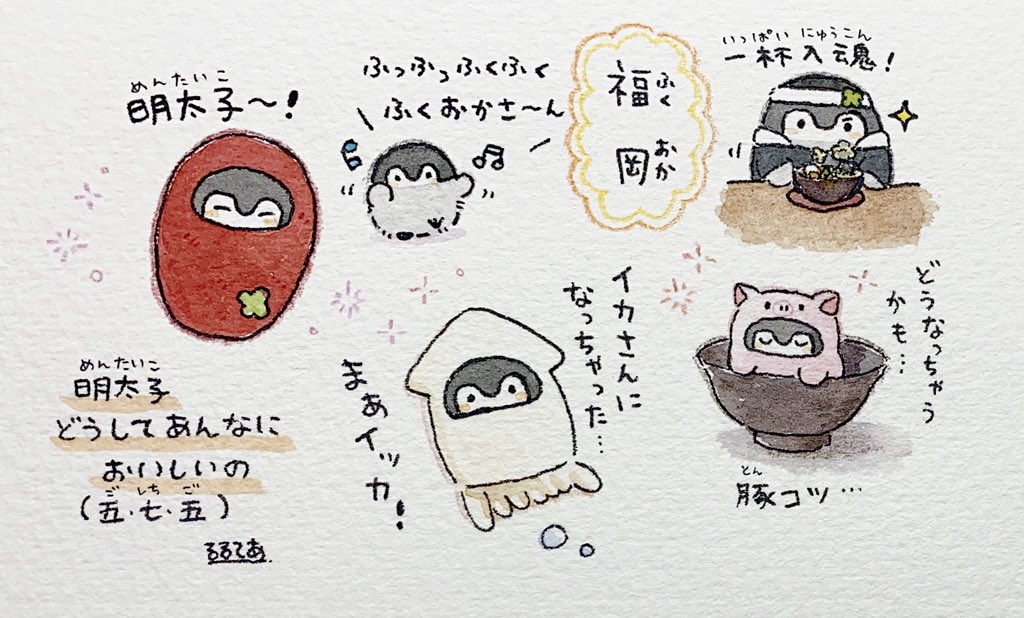 めんたいこ
明太子〜!
ふっふっふくふく
ふくおかさ〜ん
福岡
ふくおか
いっぱいにゅうこん
一杯入魂!
めんたいこ
明太子
どうしてあんなに
おいしいの
ご しち ご
(五・七・五)
るるてあ
イカさんに
なっちゃった…
まぁイッカ!
どうなっちゃう
かも…
とん
豚コツ…